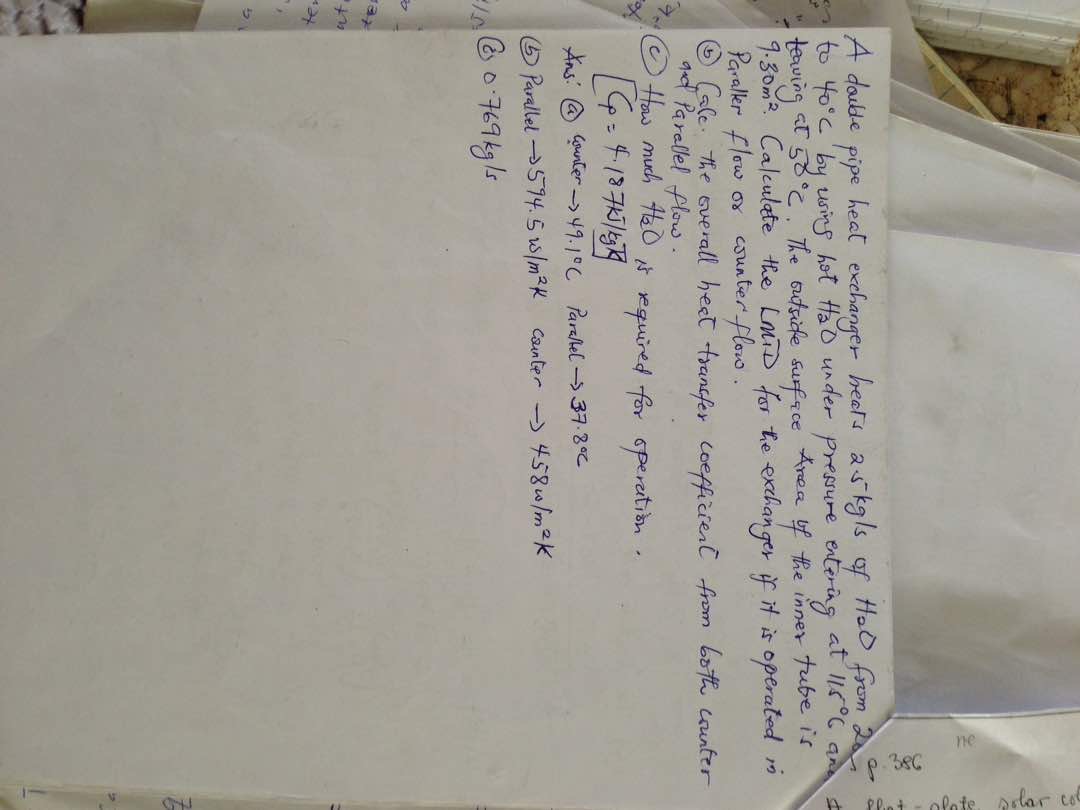 A double pipe heat exchanger heats 25kg/s of H₂O from
to 40°C by using hot H₂O under pressure entering at 115°C and
leaving at 50°C. The outside surface Area of the inner tube is
9.30m². Calculate the LMTD for the exchanger if it is operated in
Paraller flow or counter flow.
ⓑ Calc. the overall heat transfer coefficient from both counter
and Parallel flow.
ⓒ How much H₂O is required for operation.
[Cp = 4.187kJ/kgK]
Ans: ⓐ counter → 49.1°C Parallel → 37.8°C
ⓑ Parallel → 594.5 w/m²K counter → 458w/m²K
ⓒ 0.769kg/s
p. 386
ne
flat-plate solar